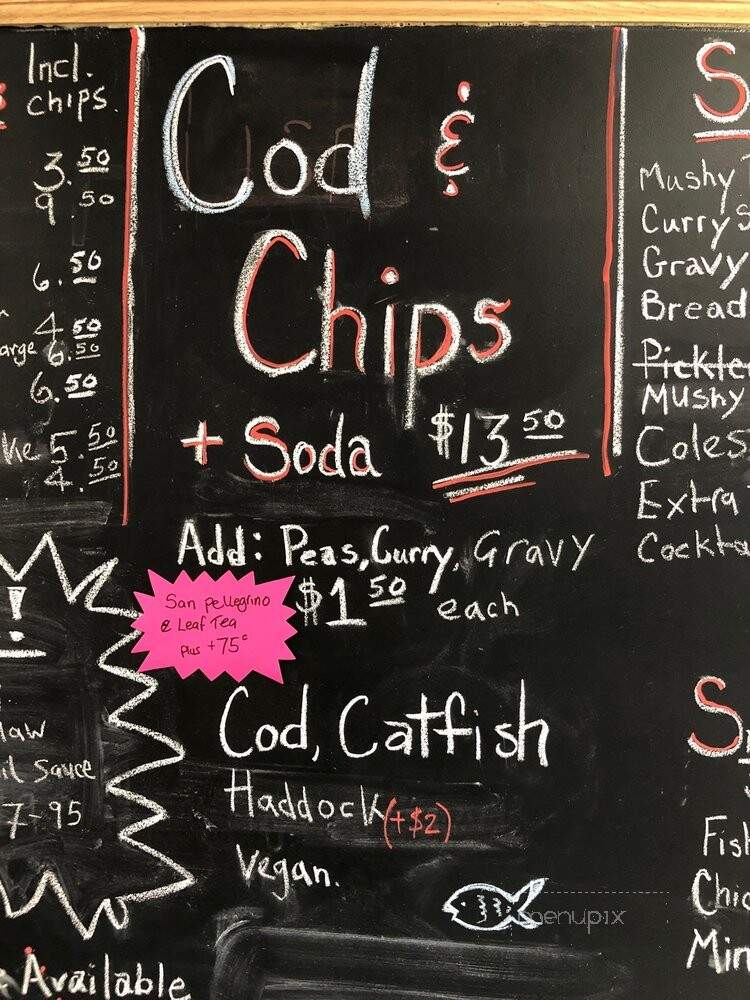 Incl.
chips.
3.50
9.50
6.50
4.50
6.50
6.50
5.50
4.50
Cod &
Chips
+ Soda $13.50
Add: Peas, Curry, Gravy
$1.50 each
San Pellegrino
& Leaf Tea
plus +75¢
Cod, Catfish
Haddock (+$2)
Vegan.
menupix
!
Sauce
7-95
Available
S
Mushy
Curry S
Gravy
Bread
Pickle
Mushy
Coles
Extra
Cockta
S
Fish
Chic
Min